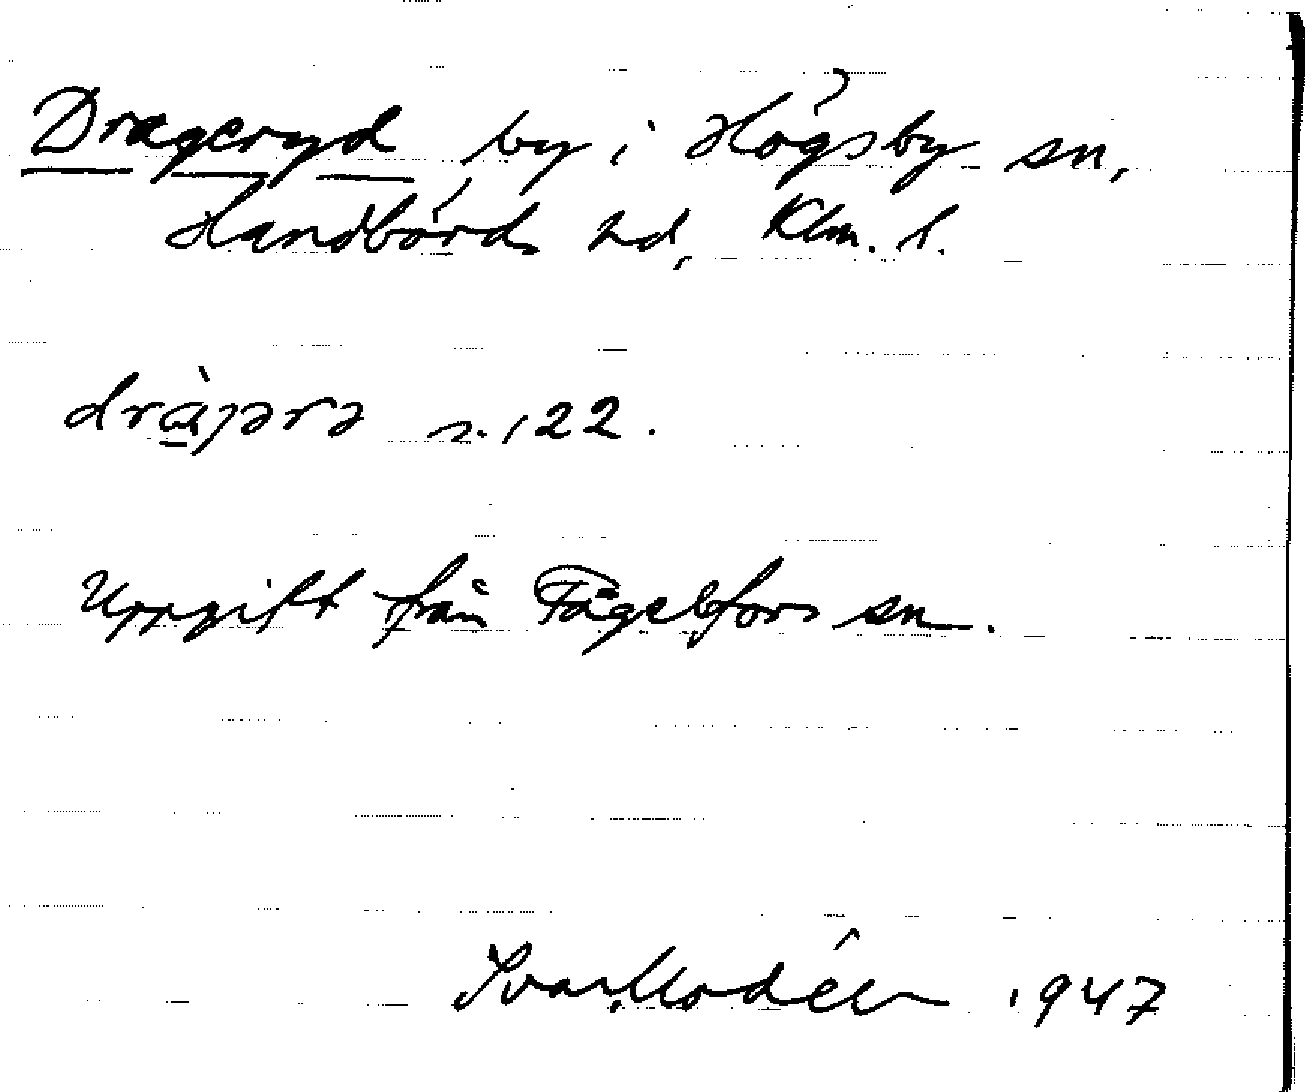 Drageryd by i Högsby sn,
Handbörds hd, Klm. l.
dràjərə s. 122.
Uppgift från Fågelfors sn.
Ivar Modéer 1947